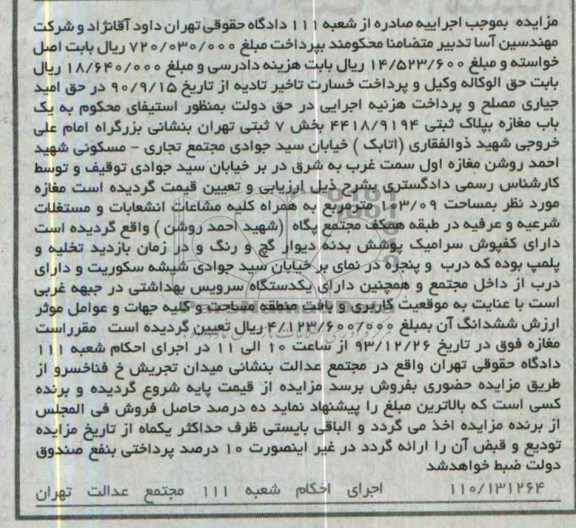 مزایده بموجب اجراییه صادره از شعبه ۱۱۱ دادگاه حقوقی تهران داود آقانژاد و شرکت
مهندسین آسا تدبیر متضامنا محکومند بپرداخت مبلغ ۷۲۰/۰۳۰/۰۰۰ ریال بابت اصل
خواسته و مبلغ ۱۴/۵۲۳/۶۰۰ ریال بابت هزینه دادرسی و مبلغ ۱۸/۶۴۰/۰۰۰ ریال
بابت حق الوکاله وکیل و پرداخت خسارت تاخیر تادیه از تاریخ ۹۰/۹/۱۵ در حق امید
جیاری مصلح و پرداخت هزنیه اجرایی در حق دولت بمنظور استیفای محکوم به یک
باب مغازه بپلاک ثبتی ۴۴۱۸/۹۱۹۴ بخش ۷ ثبتی تهران بنشانی بزرگراه امام علی
خروجی شهید ذوالفقاری (اتابک ) خیابان سید جوادی مجتمع تجاری - مسکونی شهید
احمد روشن مغازه اول سمت غرب به شرق در بر خیابان سید جوادی توقیف و توسط
کارشناس رسمی دادگستری بشرح ذیل ارزیابی و تعیین قیمت گردیده است مغازه
مورد نظر بمساحت ۱۰۳/۰۹ مترمربع به همراه کلیه مشاعات انشعابات و مستغلات
شرعیه و عرفیه در طبقه همکف مجتمع پگاه (شهید احمد روشن ) واقع گردیده است
دارای کفپوش سرامیک پوشش بدنه دیوار گچ و رنگ و در زمان بازدید تخلیه و
پلمپ بوده که درب و پنجره در نمای بر خیابان سید جوادی شیشه سکوریت و دارای
درب از داخل مجتمع و همچنین دارای یکدستگاه سرویس بهداشتی در جبهه غربی
است با عنایت به موقعیت کاربری و بافت منطقه مساحت و کلیه جهات و عوامل موثر
ارزش ششدانگ آن بمبلغ ۴/۱۲۳/۶۰۰/۰۰۰ ریال تعیین گردیده است مقرراست
مغازه فوق در تاریخ ۹۳/۱۲/۲۶ از ساعت ۱۰ الی ۱۱ در اجرای احکام شعبه ۱۱۱
دادگاه حقوقی تهران واقع در مجتمع عدالت بنشانی میدان تجریش خ فناخسرو از
طریق مزایده حضوری بفروش برسد مزایده از قیمت پایه شروع گردیده و برنده
کسی است که بالاترین مبلغ را پیشنهاد نماید ده درصد حاصل فروش فی المجلس
از برنده مزایده اخذ می گردد و الباقی بایستی ظرف حداکثر یکماه از تاریخ مزایده
تودیع و قبض آن را ارائه گردد در غیر اینصورت ۱۰ درصد پرداختی بنفع صندوق
دولت ضبط خواهدشد
۱۱۰/۱۳۱۲۶۴ اجرای احکام شعبه ۱۱۱ مجتمع عدالت تهران